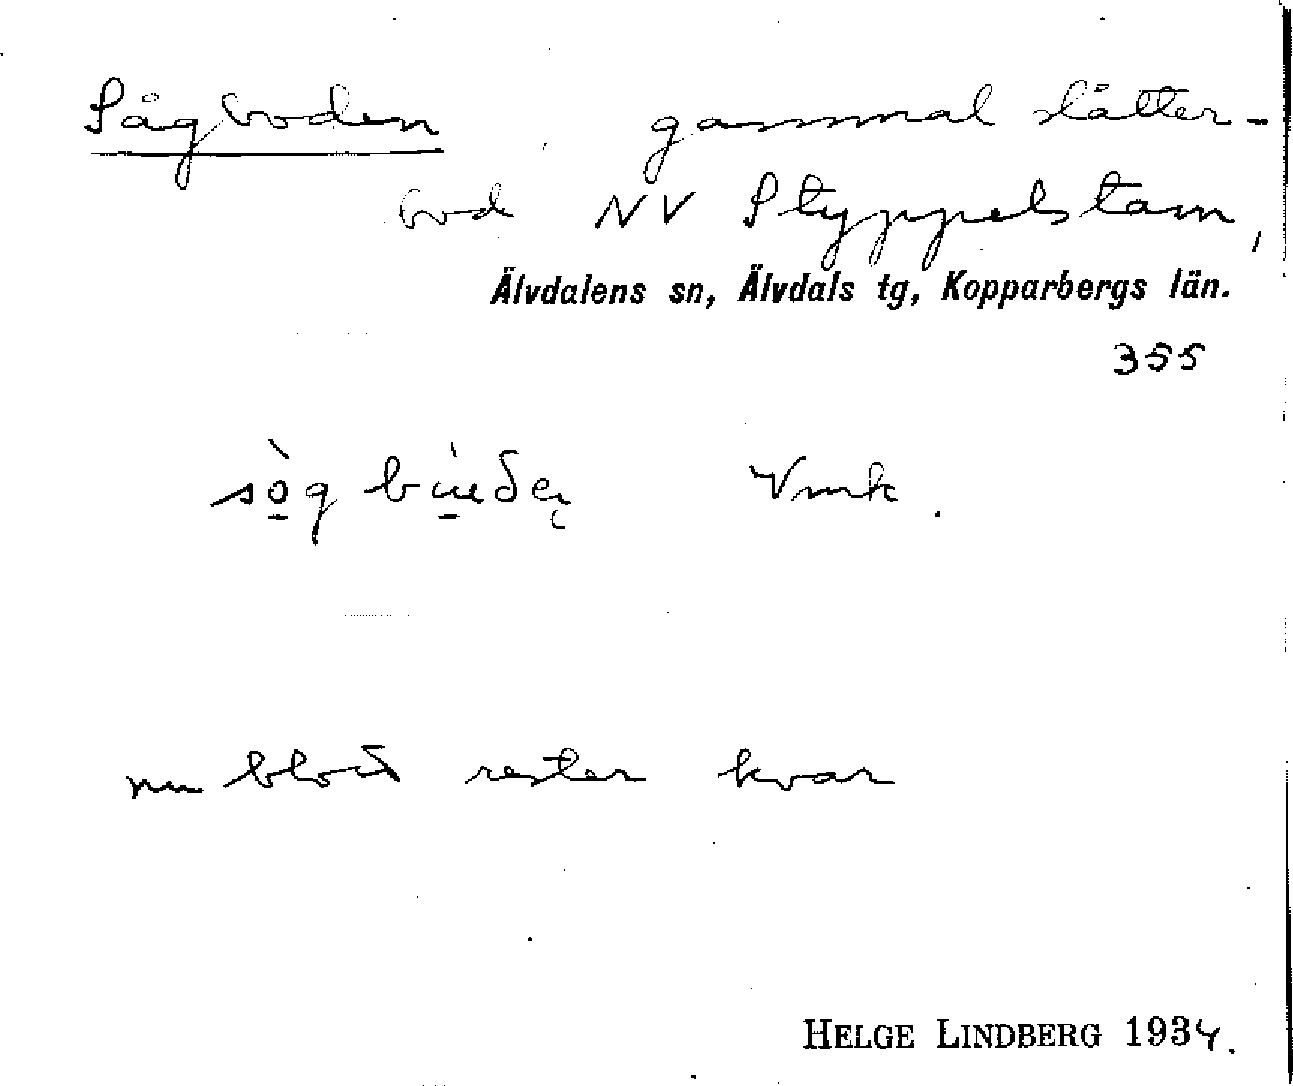 Sågboden gammal slåtter-
bod NV Styppelstam,
Älvdalens sn, Älvdals tg, Kopparbergs län.
355
sò̠g bu̠̍eðen̨ Vmk.
nu blott rester kvar
HELGE LINDBERG 1934.